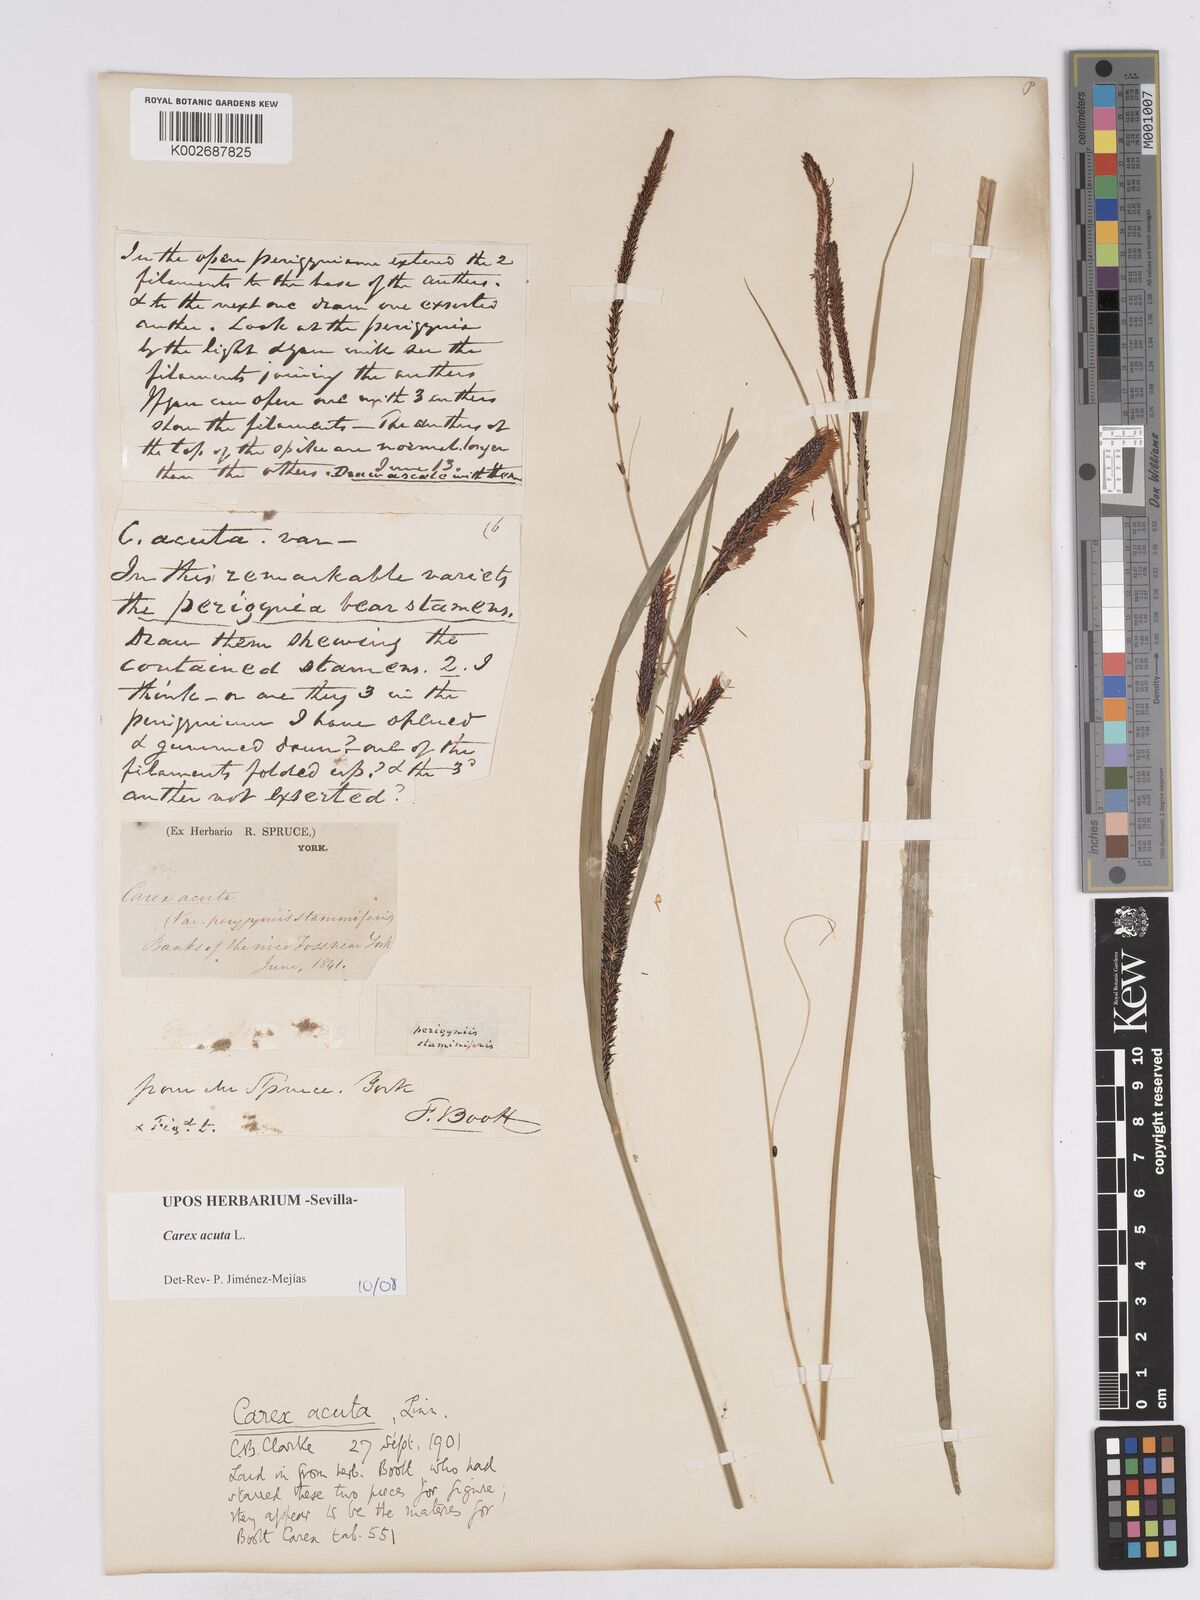 ROYAL BOTANIC GARDENS KEW
K002687825
In the open perigynium extend the 2
filaments to the base of the anthers.
& to the next one draw one exserted
anther. Look at the perigynia
by the light & you will see the
filaments joining the anthers
If you can open one with 3 anthers
show the filaments — The anthers at
the top of the spike are normal. longer
than the others. June 13.
Draw a scale with them
C. acuta. var — (6
In this remarkable variety
the perigynia bear stamens.
Draw them shewing the
contained stamens. 2. I
think — or are they 3 in the
perigynium I have opened
& gummed down? one of the
filaments folded up? & the 3d
anther not exserted?
(Ex Herbario R. SPRUCE,)
YORK.
Carex acuta
(Var. perygyniis staminiferis)
Banks of the river Foss near York
June, 1841.
perigyniis
staminiferis
from Mr Spruce. York
F. Boott
x Figd. t.
UPOS HERBARIUM -Sevilla-
Carex acuta L.
Det-Rev- P. Jiménez-Mejías 10/08
Carex acuta, Linn.
C.B. Clarke 27 Sept. 1901
Laid in from herb. Boott who had
starred these two pieces for figure;
they appear to be the materes for
Boott Carex tab. 551
centimeters
M001007
Don Williams
Density
Inches
Royal Botanic Gardens
Kew
copyright reserved
0 1 2 3 4 5 6 7 8 9 10
cm